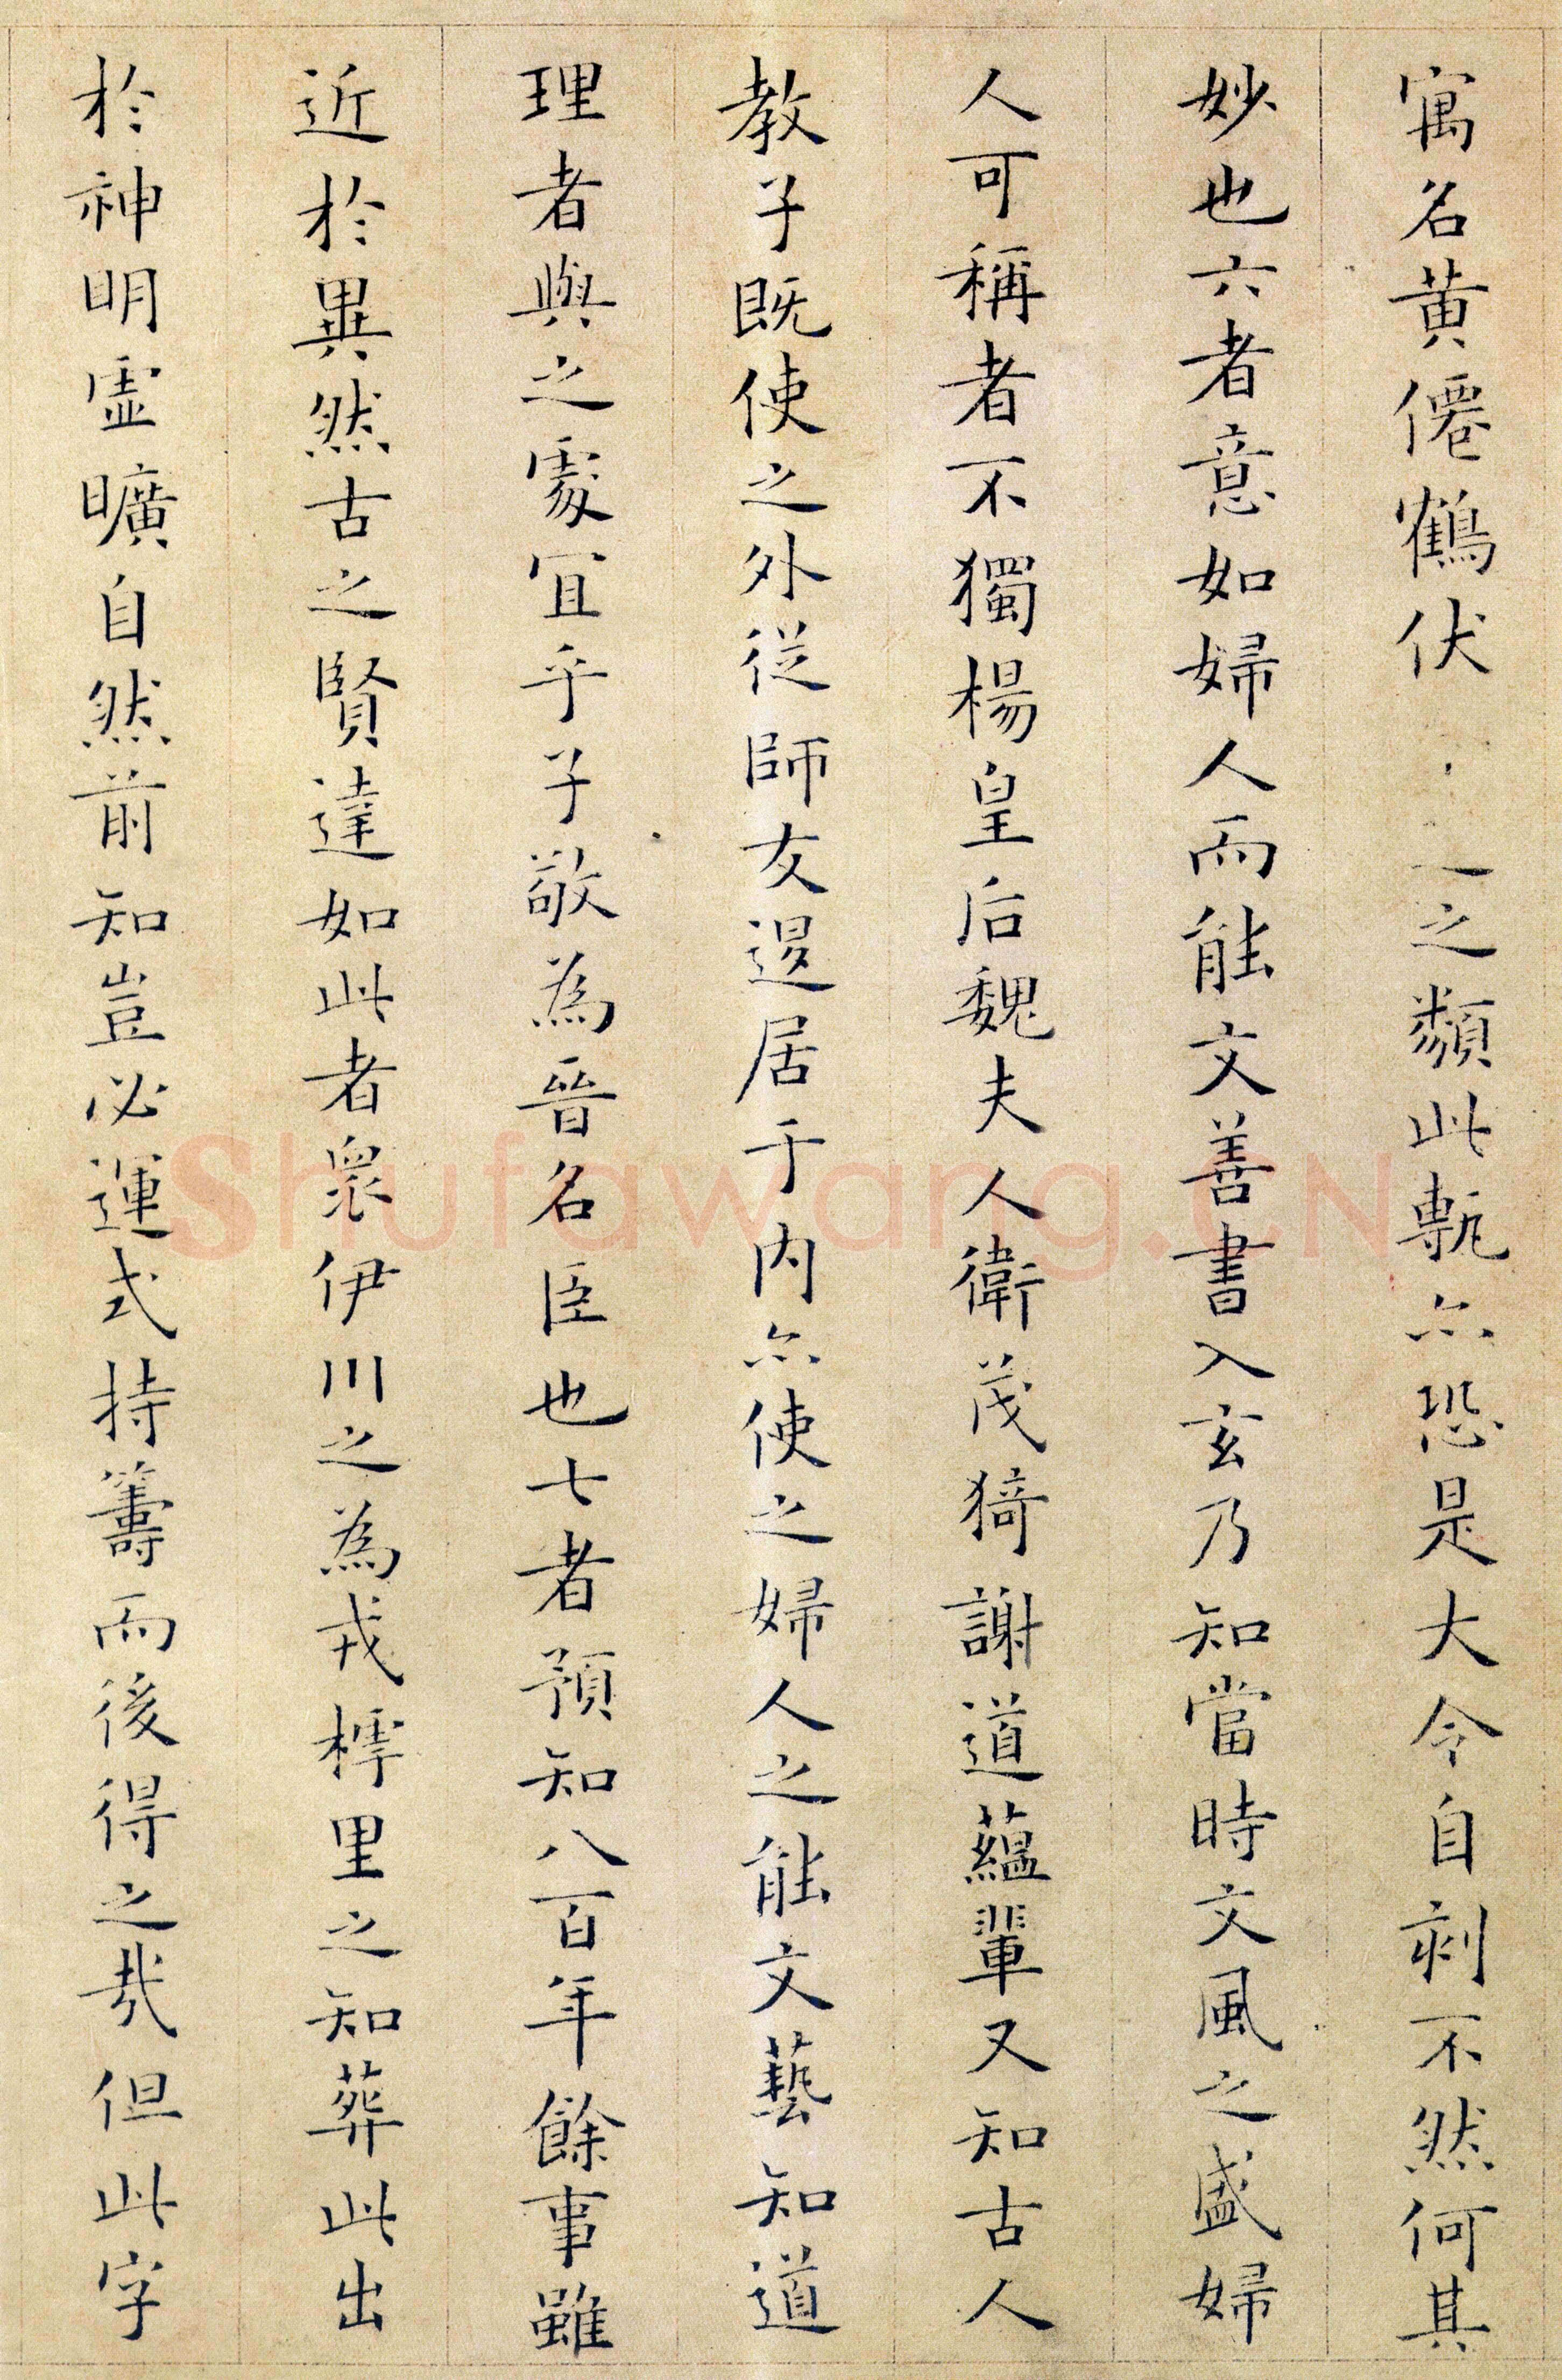 寓名黄僊鶴伏之類此甎亦恐是大令自刻不然何其
妙也六者意如婦人而能文善書入玄乃知當時文風之盛婦
人可稱者不獨楊皇后魏夫人衛茂猗謝道蘊輩又知古人
教子既使之外從師友退居于内亦使之婦人之能文藝知道
理者與之處宜乎子敬為晉名臣也七者預知八百年餘事雖
近於異然古之賢達如此者衆伊川之為戎樗里之知葬此出
於神明虚曠自然前知豈必運式持籌而後得之哉但此字
Shufawang.CN